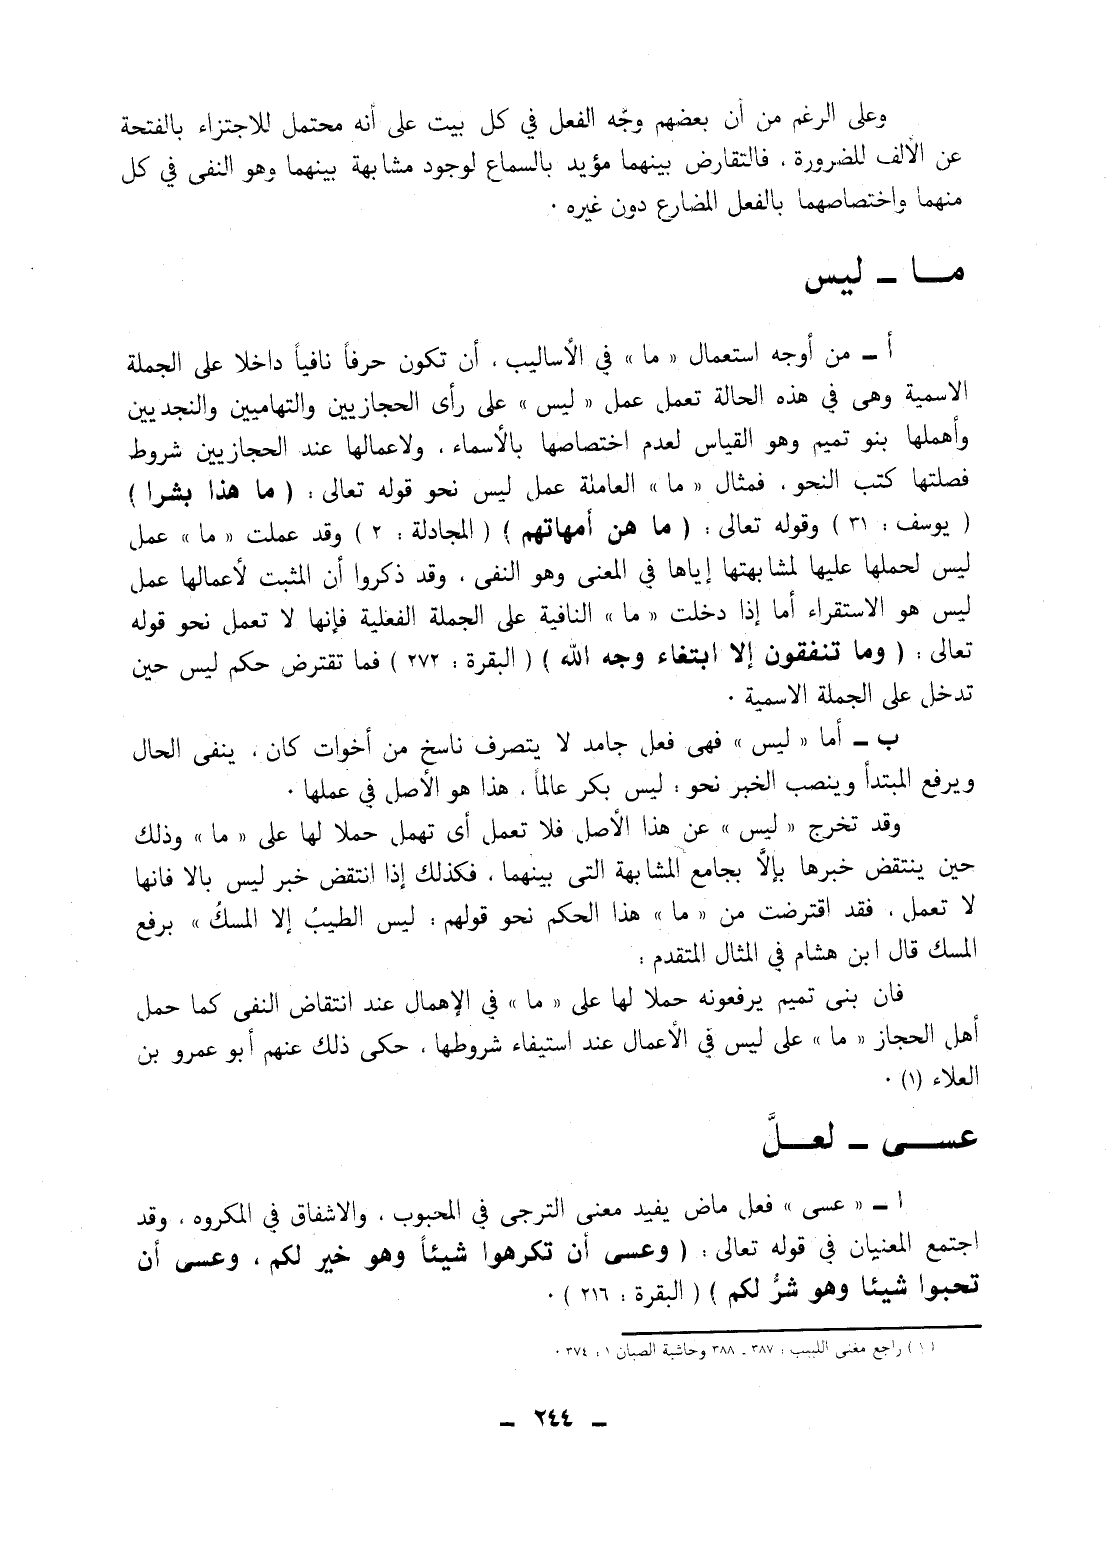 وعلى الرغم من أن بعضهم وجّه الفعل في كل بيت على أنه محتمل للاجتزاء بالفتحة
عن الألف للضرورة ، فالتقارض بينهما مؤيد بالسماع لوجود مشابهة بينهما وهو النفى في كل
منهما واختصاصهما بالفعل المضارع دون غيره .
مـــا ـ ليس
أ ـ من أوجه استعمال « ما » في الأساليب ، أن تكون حرفاً نافياً داخلا على الجملة
الاسمية وهى في هذه الحالة تعمل عمل « ليس » على رأى الحجازيين والتهاميين والنجديين
وأهملها بنو تميم وهو القياس لعدم اختصاصها بالأسماء ، ولاعمالها عند الحجازيين شروط
فصلتها كتب النحو ، فمثال « ما » العاملة عمل ليس نحو قوله تعالى : ( ما هذا بشرا )
( يوسف : ٣١ ) وقوله تعالى : ( ما هن أمهاتهم ) ( المجادلة : ٢ ) وقد عملت « ما » عمل
ليس لحملها عليها لمشابهتها إياها في المعنى وهو النفى ، وقد ذكروا أن المثبت لأعمالها عمل
ليس هو الاستقراء أما إذا دخلت « ما » النافية على الجملة الفعلية فإنها لا تعمل نحو قوله
تعالى : ( وما تنفقون إلا ابتغاء وجه الله ) ( البقرة : ٢٧٢ ) فما تقترض حكم ليس حين
تدخل على الجملة الاسمية .
ب ـ أما « ليس » فهى فعل جامد لا يتصرف ناسخ من أخوات كان ، ينفى الحال
ويرفع المبتدأ وينصب الخبر نحو : ليس بكر عالماً ، هذا هو الأصل في عملها .
وقد تخرج « ليس » عن هذا الأصل فلا تعمل أى تهمل حملا لها على « ما » وذلك
حين ينتقض خبرها بإلاَّ بجامع المشابهة التى بينهما ، فكذلك إذا انتقض خبر ليس بالا فانها
لا تعمل ، فقد اقترضت من « ما » هذا الحكم نحو قولهم : ليس الطيبُ إلا المسكُ » برفع
المسك قال ابن هشام في المثال المتقدم :
فان بنى تميم يرفعونه حملا لها على « ما » في الإهمال عند انتقاض النفى كما حمل
أهل الحجاز « ما » على ليس في الأعمال عند استيفاء شروطها ، حكى ذلك عنهم أبو عمرو بن
العلاء (١) .
عســـى ـ لعـــلَّ
ا ـ « عسى » فعل ماض يفيد معنى الترجى في المحبوب ، والاشفاق في المكروه ، وقد
اجتمع المعنيان في قوله تعالى : ( وعسى أن تكرهوا شيئاً وهو خير لكم ، وعسى أن
تحبوا شيئا وهو شرُّ لكم ) ( البقرة : ٢١٦ ) .
( ١ ) راجع مغنى اللبيب : ٣٨٧ ـ ٣٨٨ وحاشية الصبان ١ : ٣٧٤ .
ـ ٢٤٤ ـ